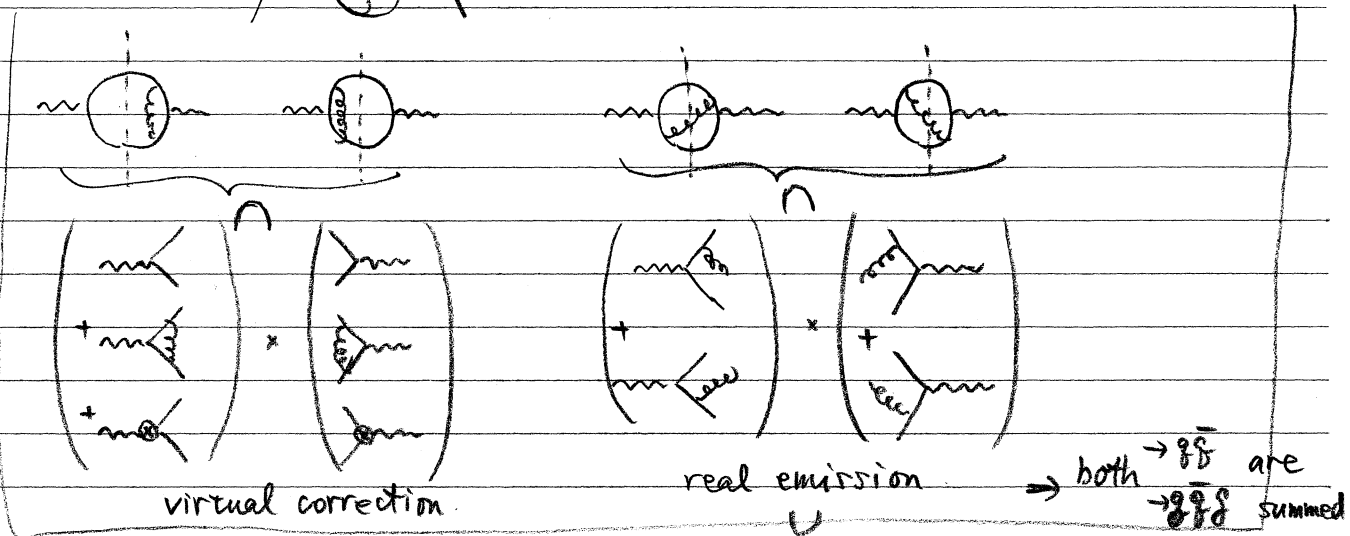 virtual correction
real emission
⇒ both → q q̄ are
→ q q̄ g summed